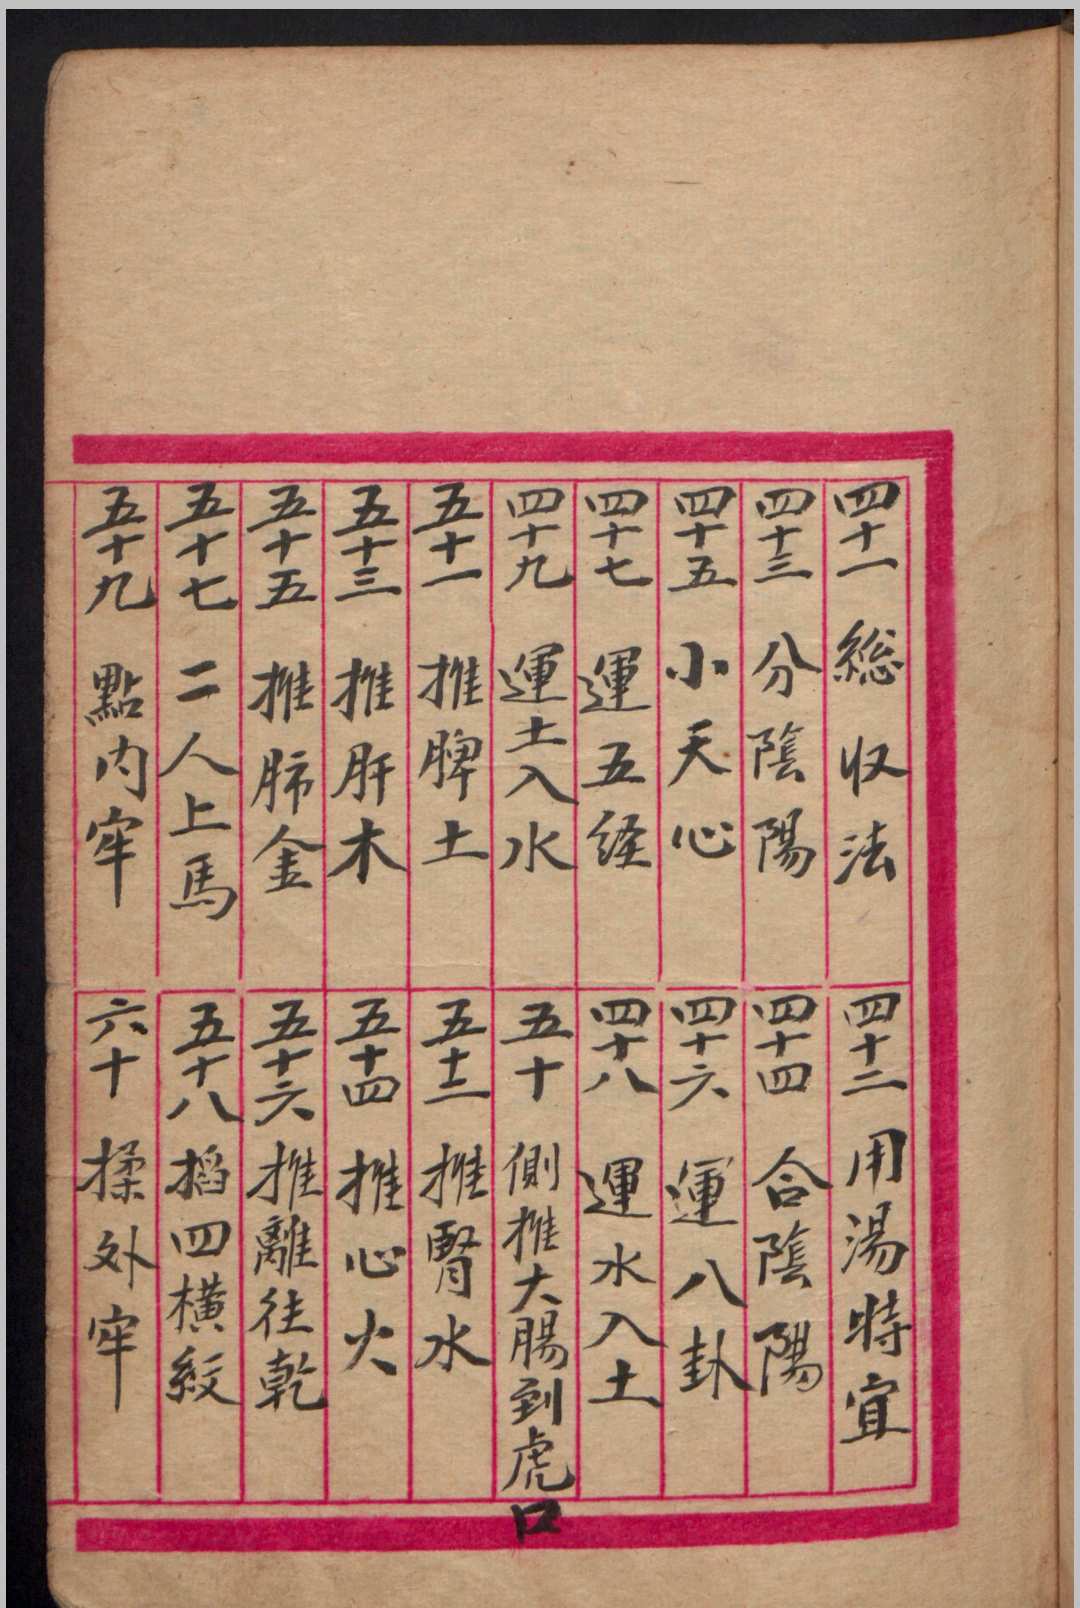 四十一 総收法
四十二 用湯時宜
四十三 分陰陽
四十四 合陰陽
四十五 小天心
四十六 運八卦
四十七 運五経
四十八 運水入土
四十九 運土入水
五十 側推大腸到虎口
五十一 推脾土
五十二 推腎水
五十三 推肝木
五十四 推心火
五十五 推肺金
五十六 推離往乾
五十七 二人上馬
五十八 掐四横紋
五十九 點内牢
六十 揉外牢